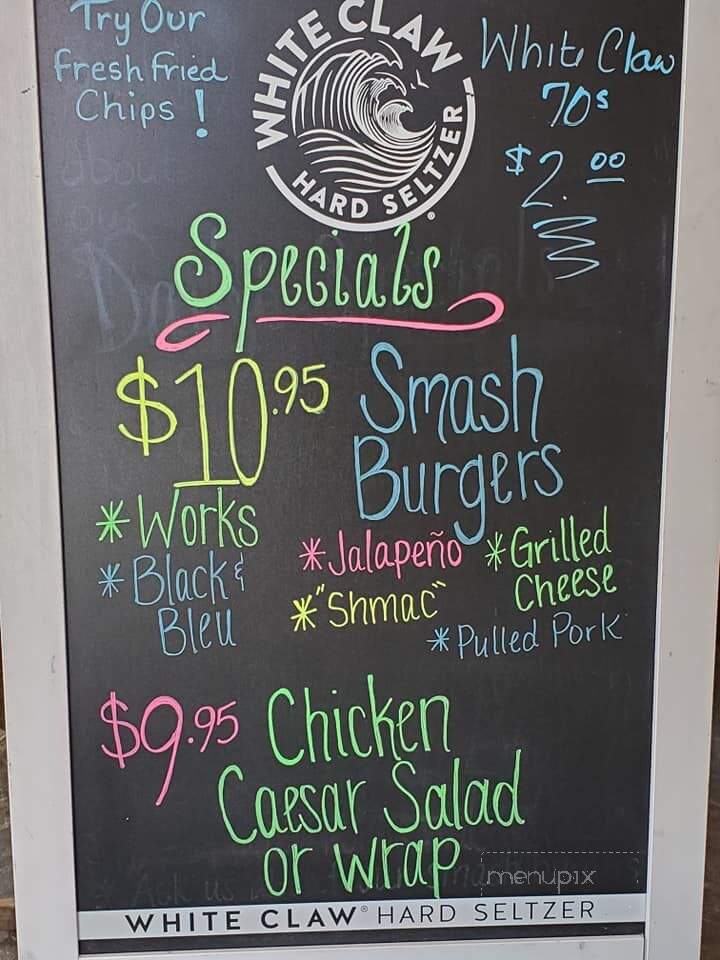 Try Our
Fresh Fried
Chips!
WHITE CLAW
HARD SELTZER®
White Claw
70s
$2.00
Specials
$10.95 Smash
Burgers
*Works
*Black &
Bleu
*Jalapeño
*"Shmac"
*Grilled
Cheese
*Pulled Pork
$9.95 Chicken
Caesar Salad
or wrap
menupix
WHITE CLAW® HARD SELTZER